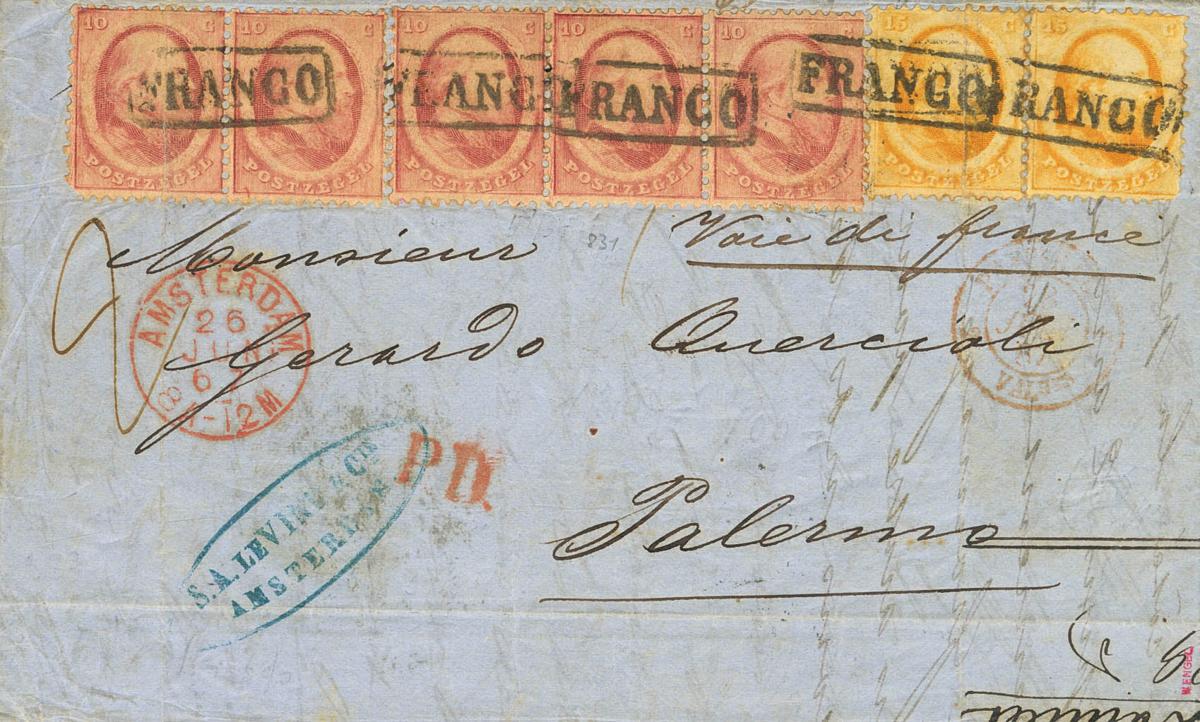 10 C 10 C 10 C 10 C 10 C 15 C 15 C
FRANCO FRANCO FRANCO FRANCO
POSTZEGEL POSTZEGEL POSTZEGEL POSTZEGEL POSTZEGEL POSTZEGEL POSTZEGEL
831
Monsieur
Voie di france
AMSTERDAM
26
JUN
Gerardo Quercioli
P.D.
S.A. LEVINO & Co
AMSTERDAM
Palermo
ENGEL